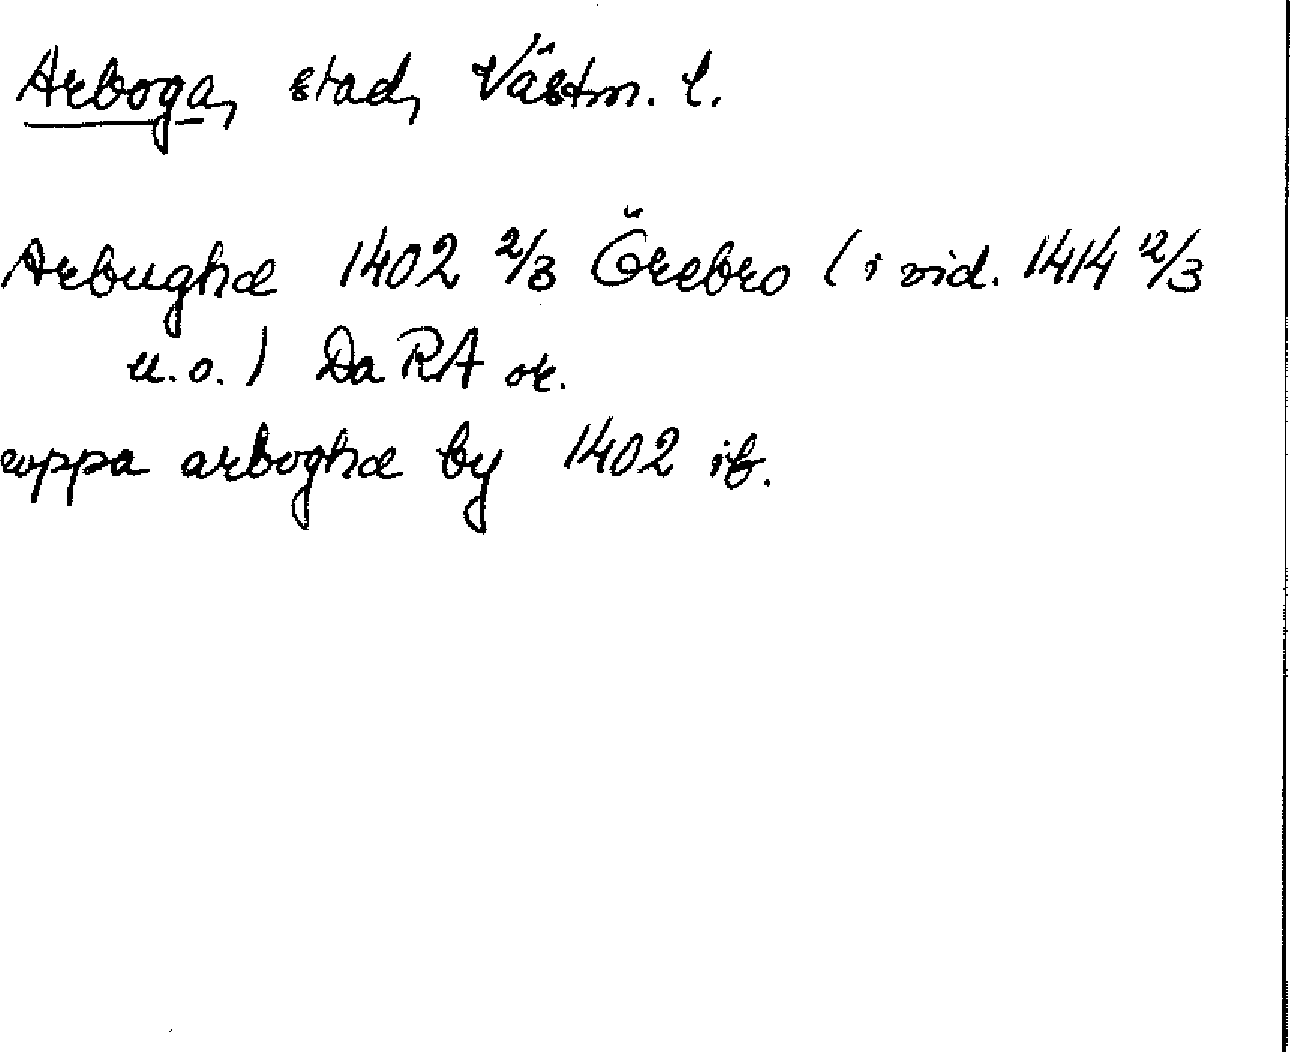 Arboga, stad, Västm. l.
Arbughæ 1402 2/3 Örebro (i vid. 1414 12/3
u.o.) Da RA or.
uppa arboghæ by 1402 ib.